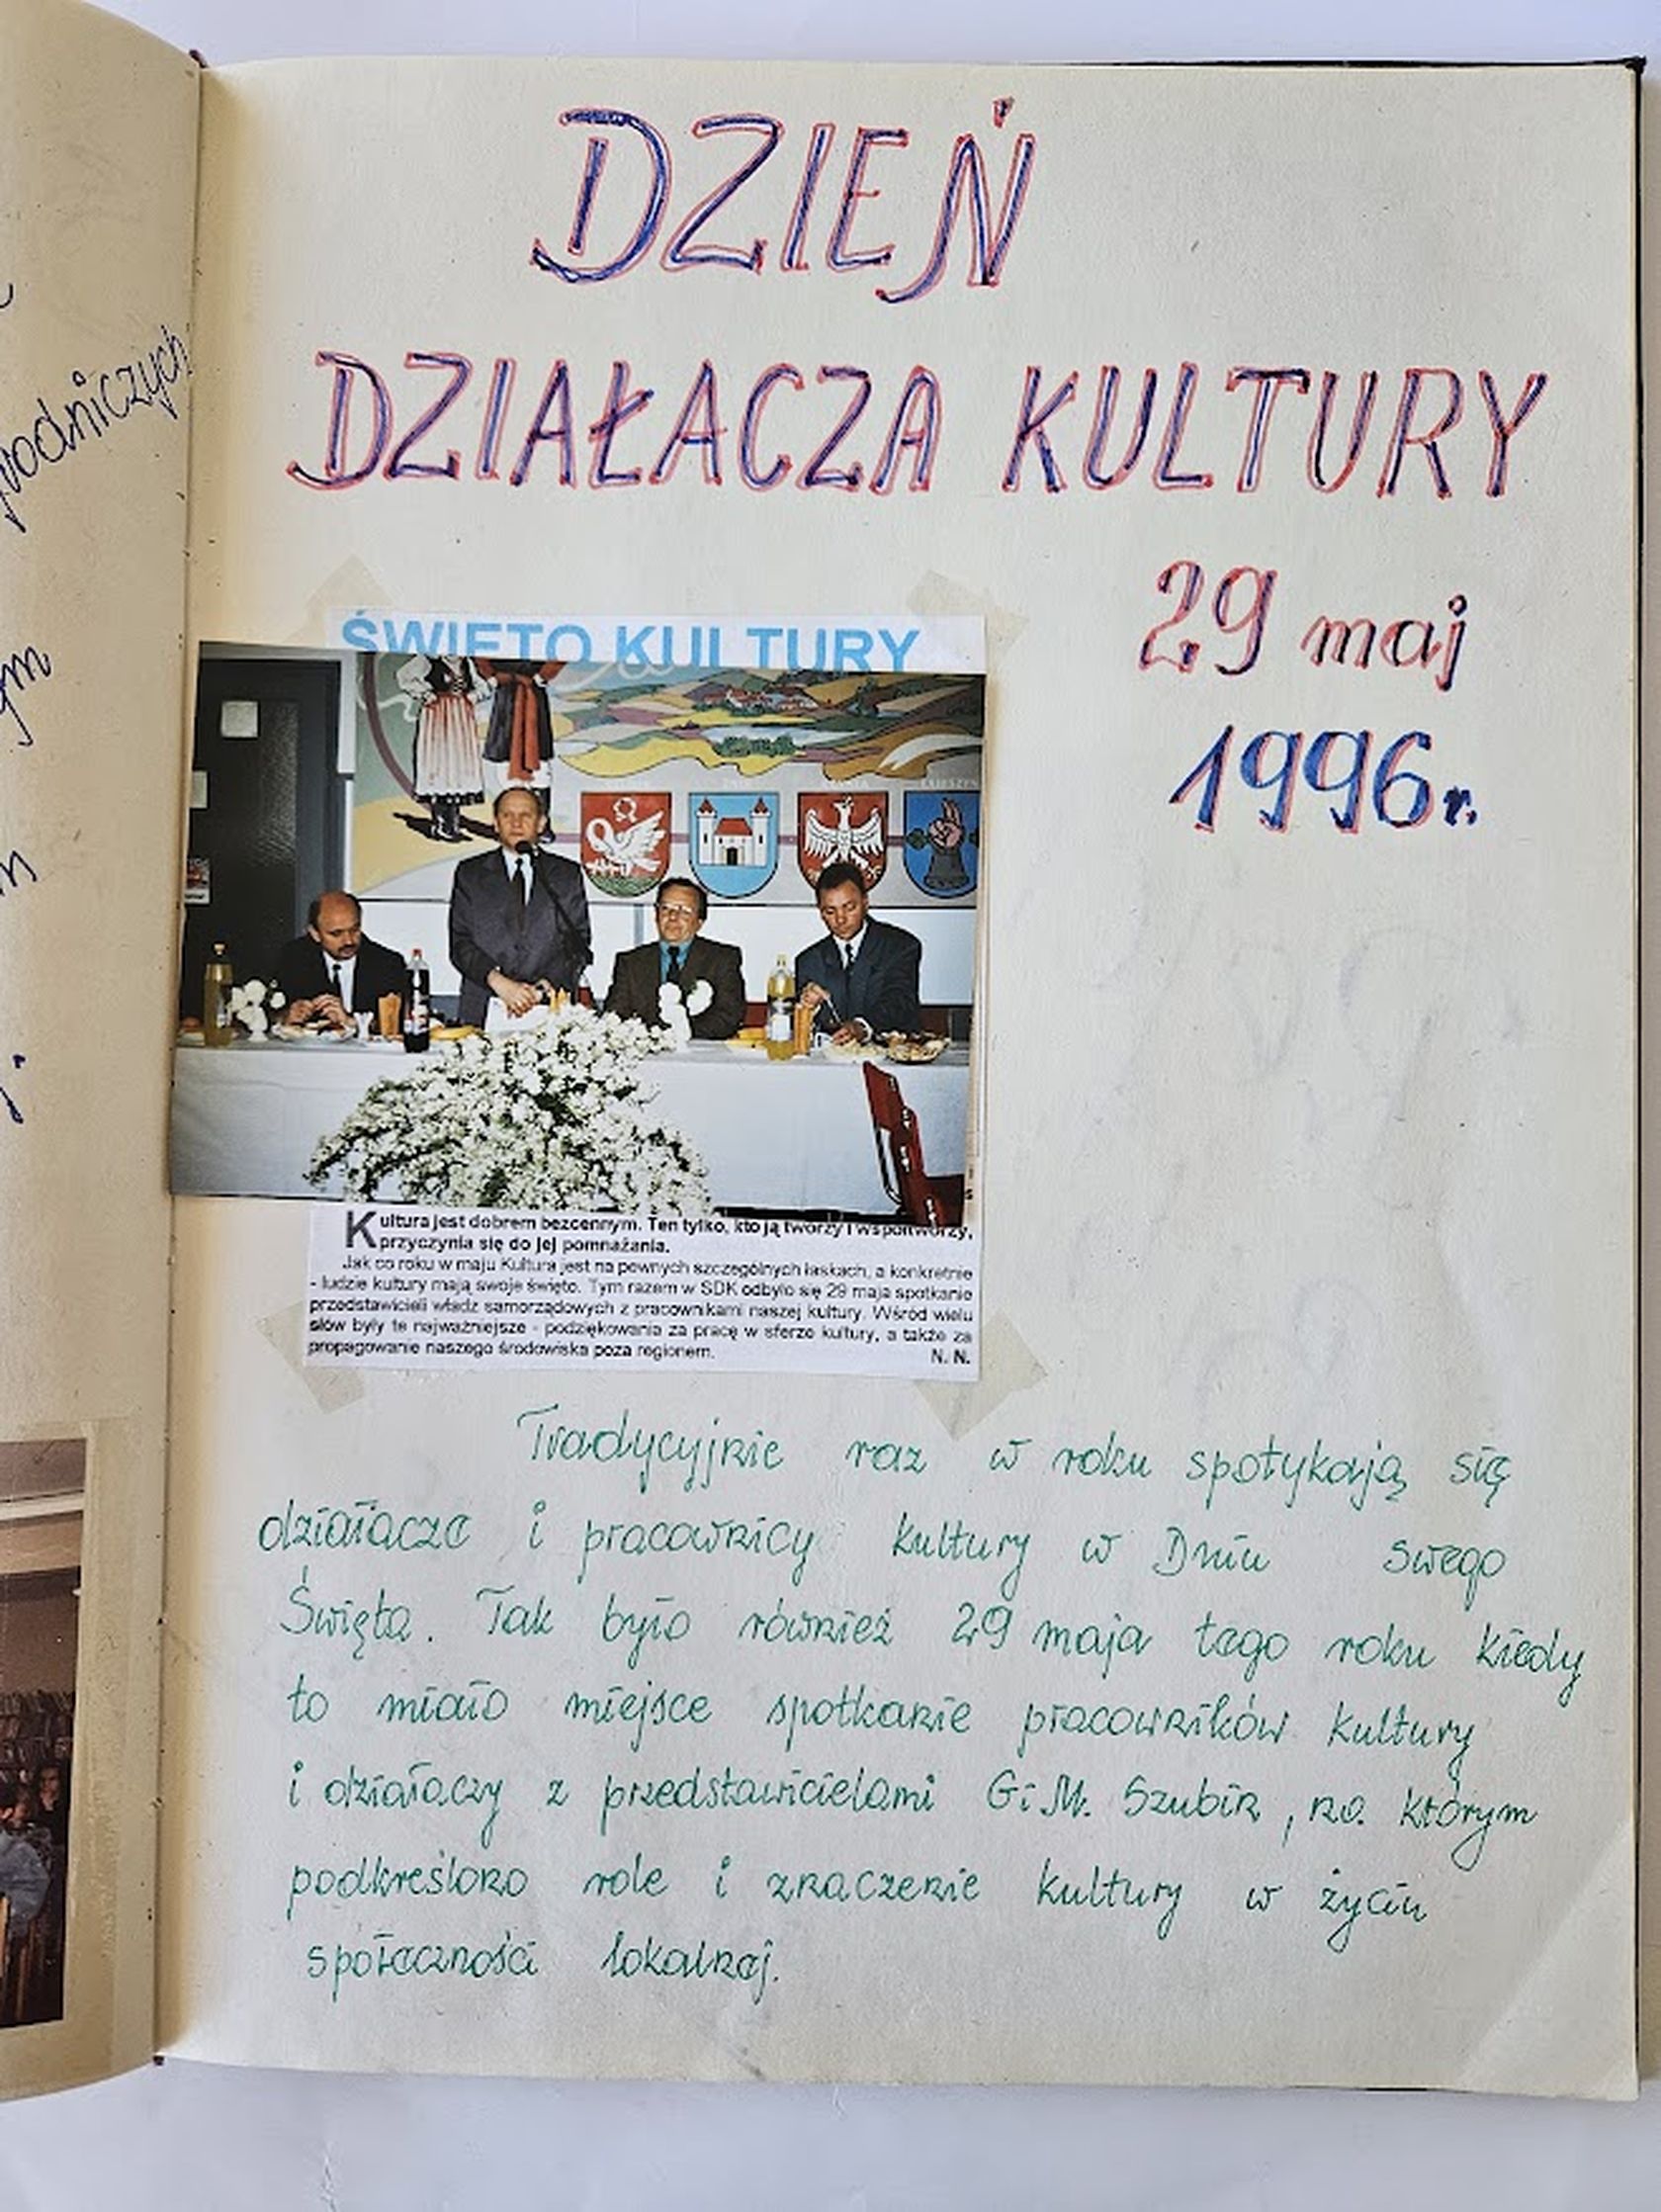 podniczych
DZIEŃ
DZIAŁACZA KULTURY
29 maj
1996r.
ŚWIĘTO KULTURY
Kultura jest dobrem bezcennym. Ten tylko, kto ją tworzy i współtworzy,
przyczynia się do jej pomnażania.
Jak co roku w maju Kultura jest na pewnych szczególnych łaskach, a konkretnie
- ludzie kultury mają swoje święto. Tym razem w SDK odbyło się 29 maja spotkanie
przedstawicieli władz samorządowych z pracownikami naszej kultury. Wśród wielu
słów były te najważniejsze - podziękowania za pracę w sferze kultury, a także za
propagowanie naszego środowiska poza regionem.
N. N.
Tradycyjnie raz w roku spotykają się
działacze i pracownicy kultury w Dniu swego
Święta. Tak było również 29 maja tego roku kiedy
to miało miejsce spotkanie pracowników kultury
i działaczy z przedstawicielami G i M. Szubin, na którym
podkreślono role i znaczenie kultury w życiu
społeczności lokalnej.